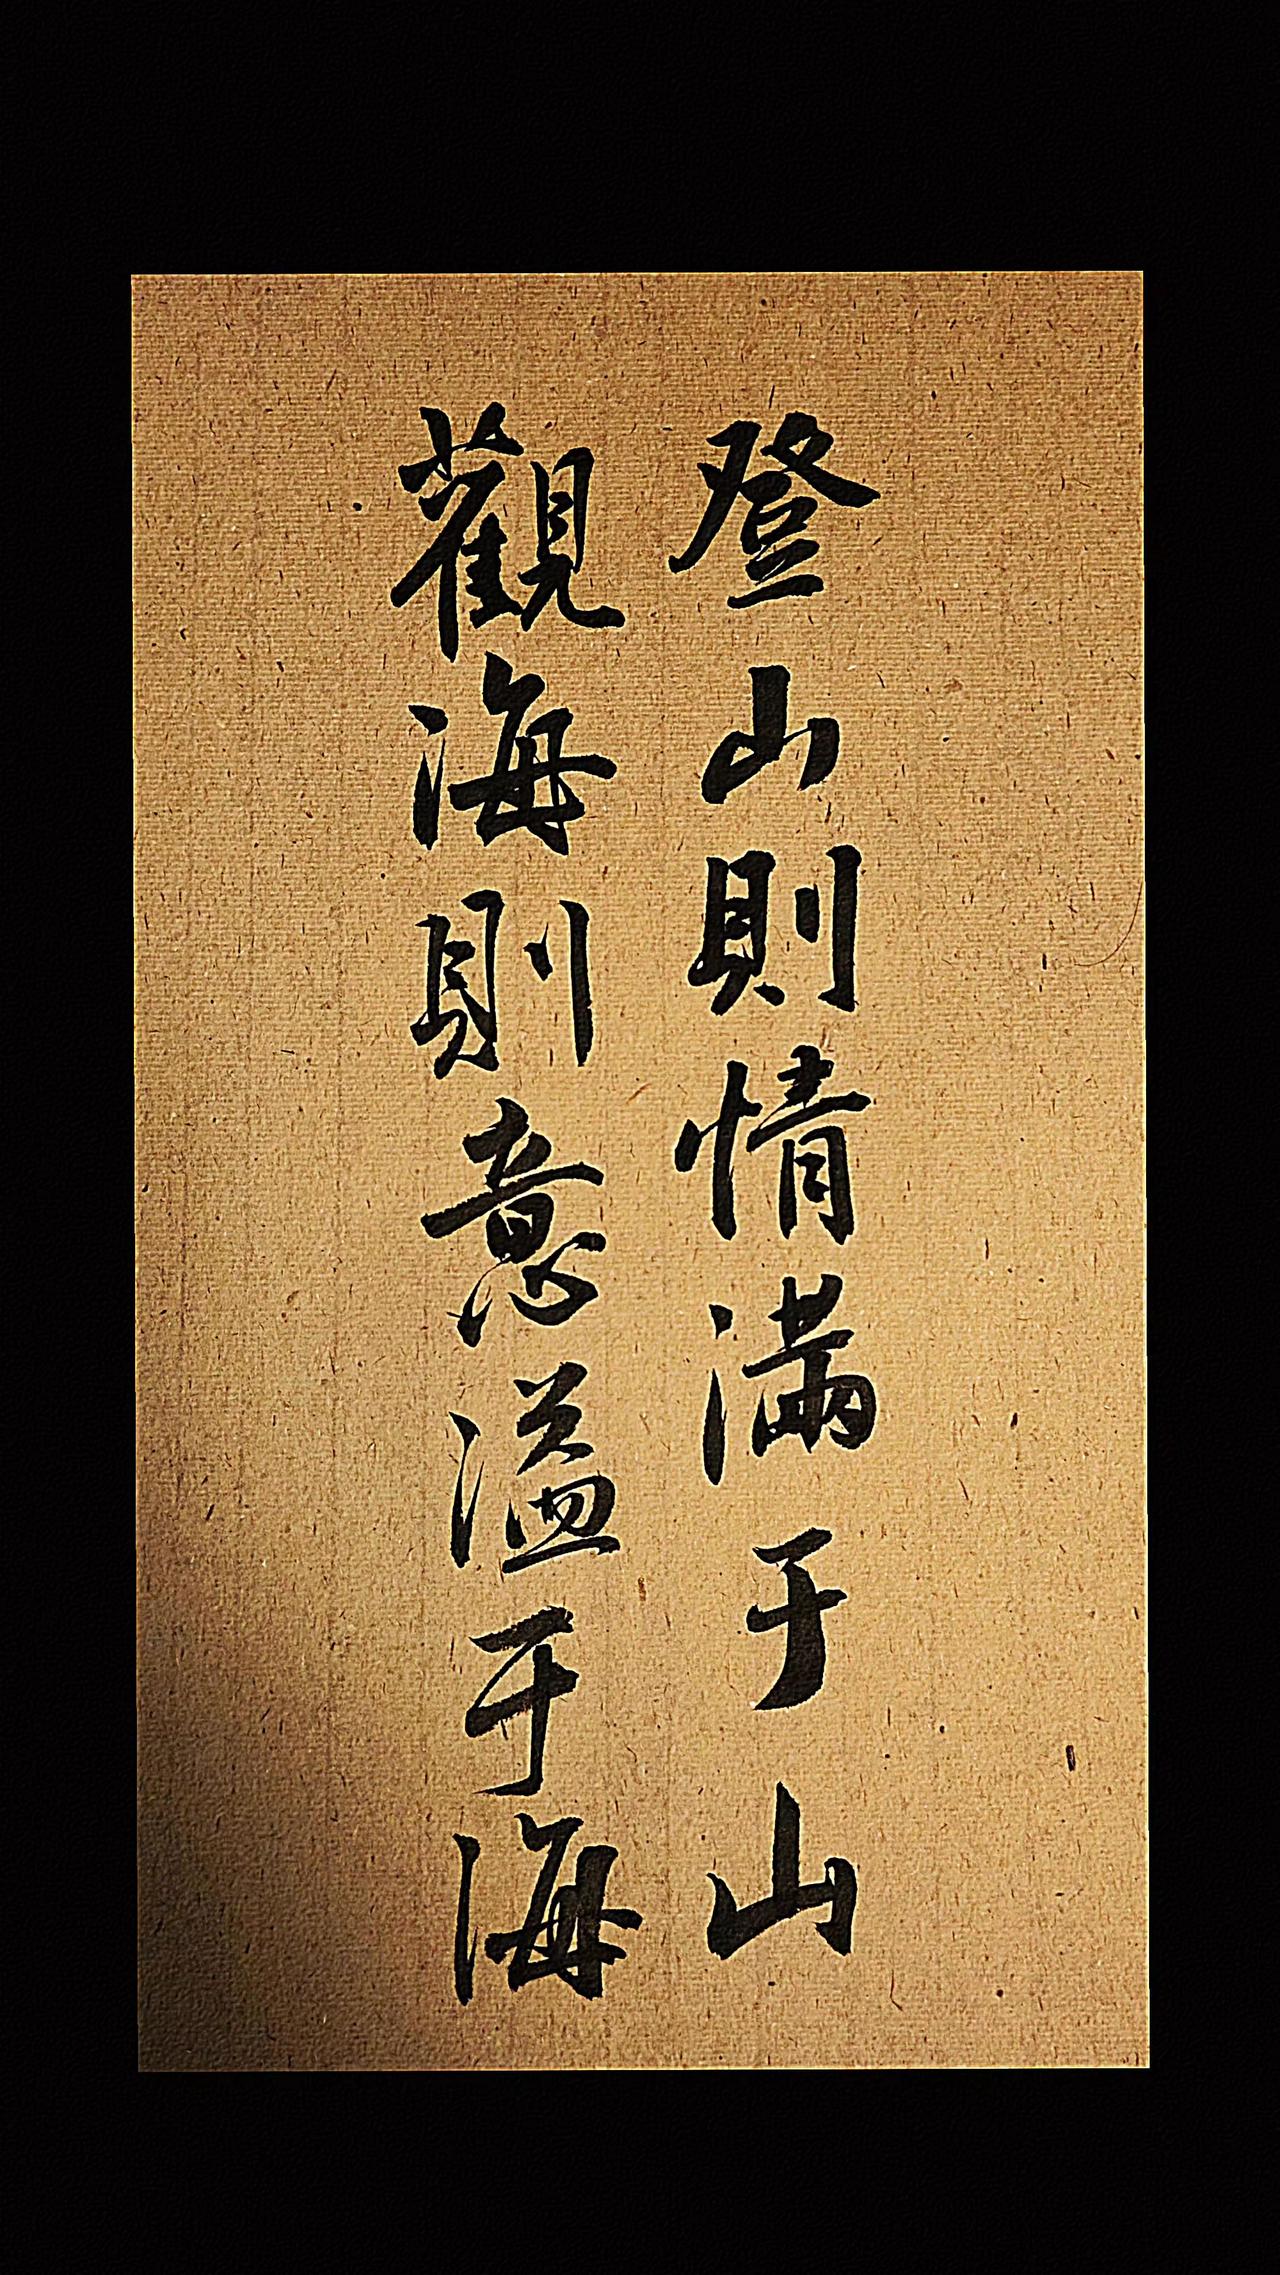 登山則情滿于山
觀海則意溢于海